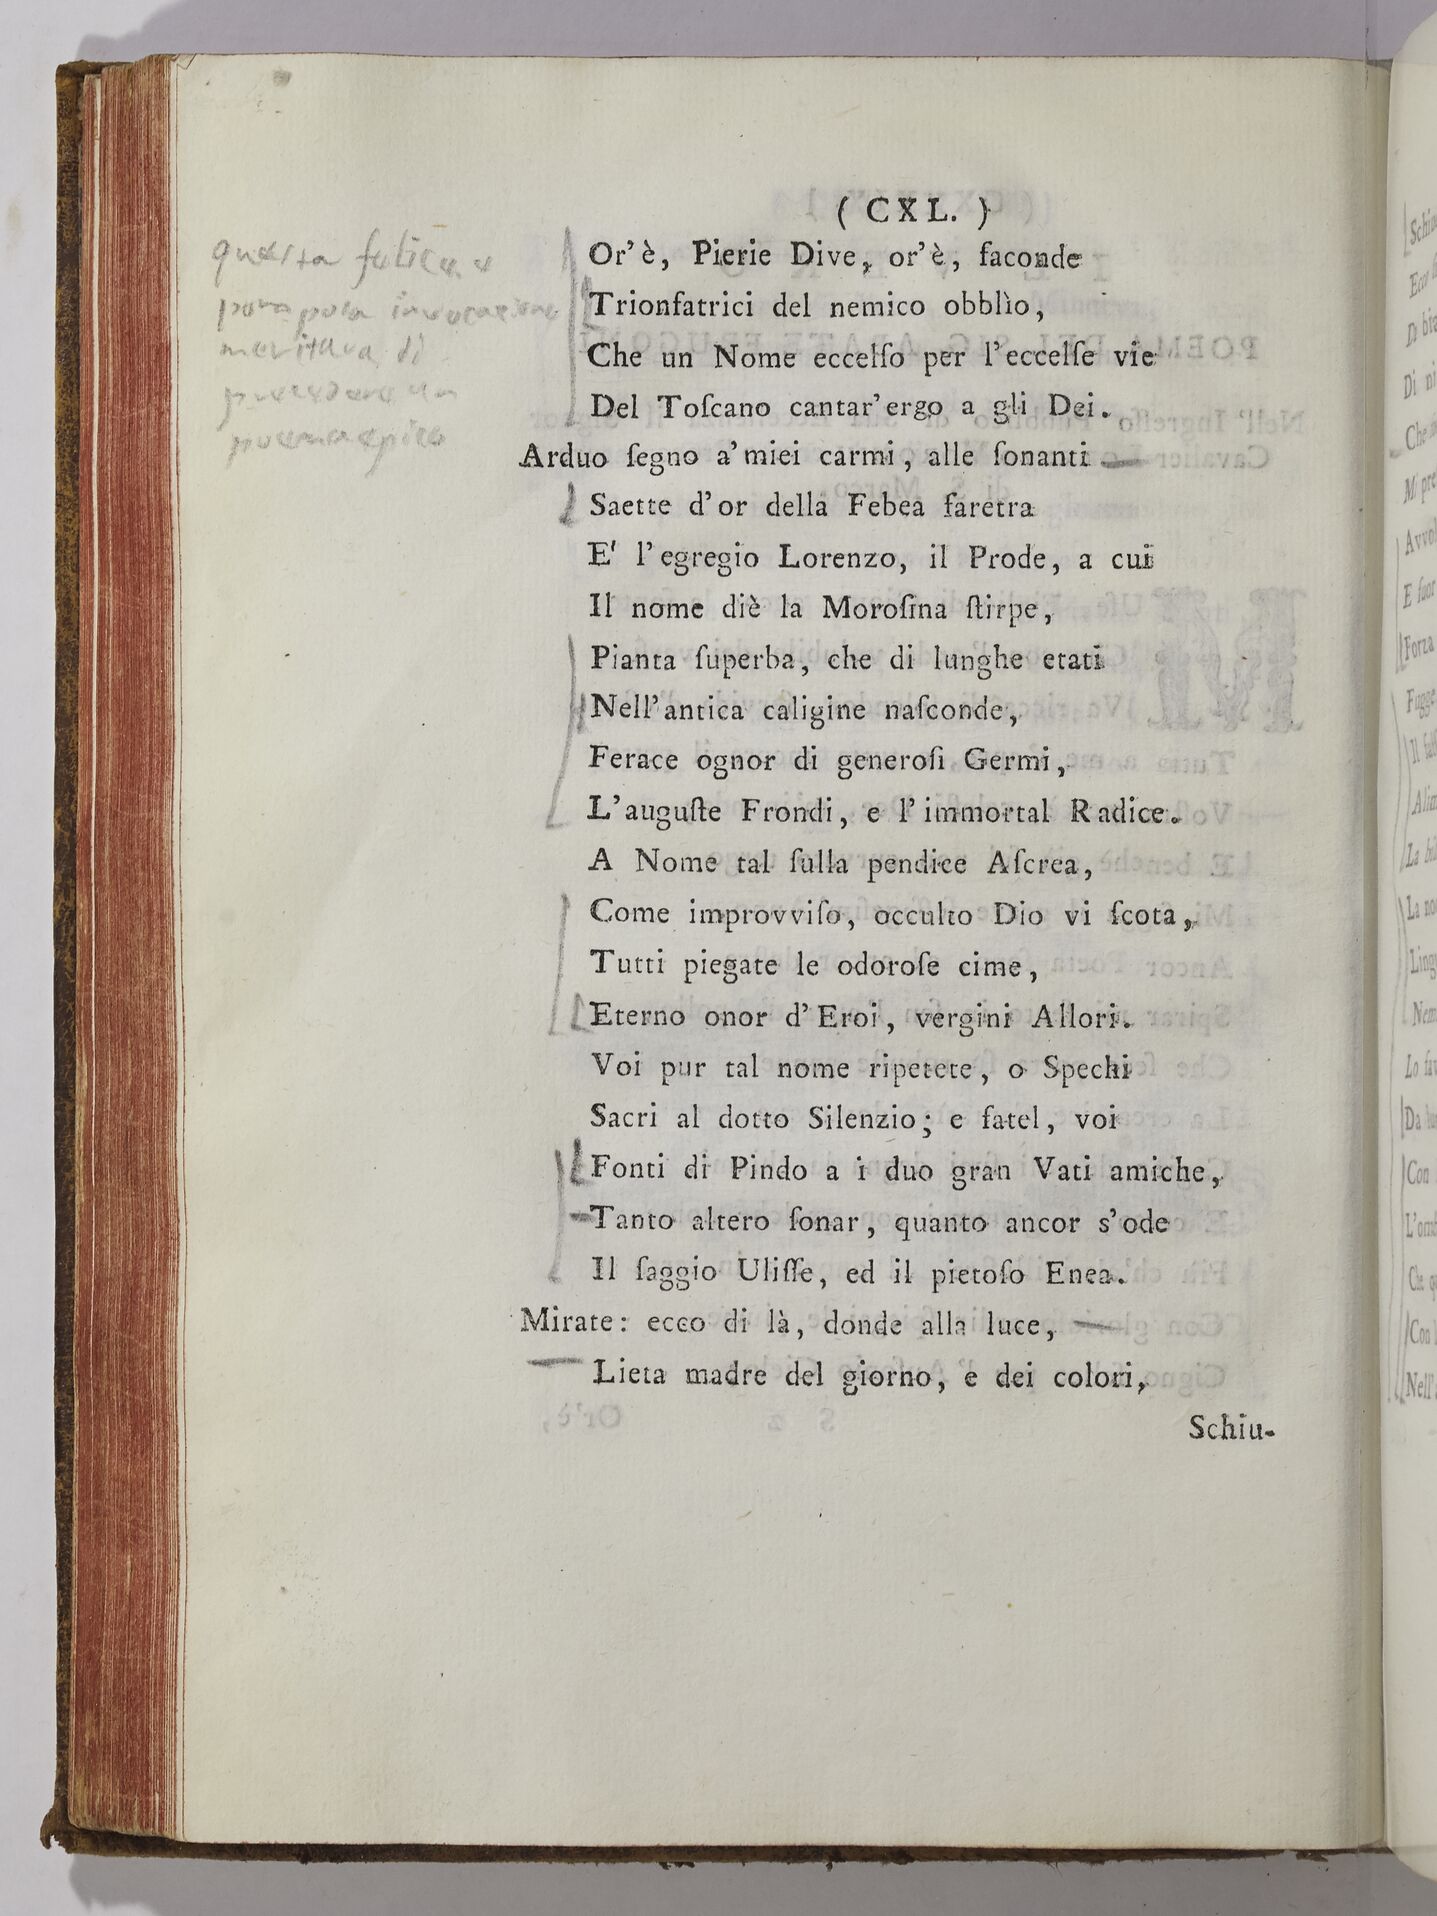 ( CXL. )
Or' è, Pierie Dive, or' è, faconde
Trionfatrici del nemico obblìo,
Che un Nome eccelſo per l'eccelſe vie
Del Toſcano cantar' ergo a gli Dei.
Arduo ſegno a' miei carmi, alle ſonanti
Saette d'or della Febea faretra
E' l'egregio Lorenzo, il Prode, a cui
Il nome diè la Moroſina ſtirpe,
Pianta ſuperba, che di lunghe etati
Nell'antica caligine naſconde,
Ferace ognor di generoſi Germi,
L'auguſte Frondi, e l'immortal Radice.
A Nome tal ſulla pendice Aſcrea,
Come improvviſo, occulto Dio vi ſcota,
Tutti piegate le odoroſe cime,
Eterno onor d'Eroi, vergini Allori.
Voi pur tal nome ripetete, o Spechi
Sacri al dotto Silenzio; e fatel, voi
Fonti di Pindo a i duo gran Vati amiche,
Tanto altero ſonar, quanto ancor s'ode
Il ſaggio Uliſſe, ed il pietoſo Enea.
Mirate: ecco di là, donde alla luce,
Lieta madre del giorno, e dei colori,
Schiu-
questa
pomposa invocazione
meritava di
precedere un
poema epico